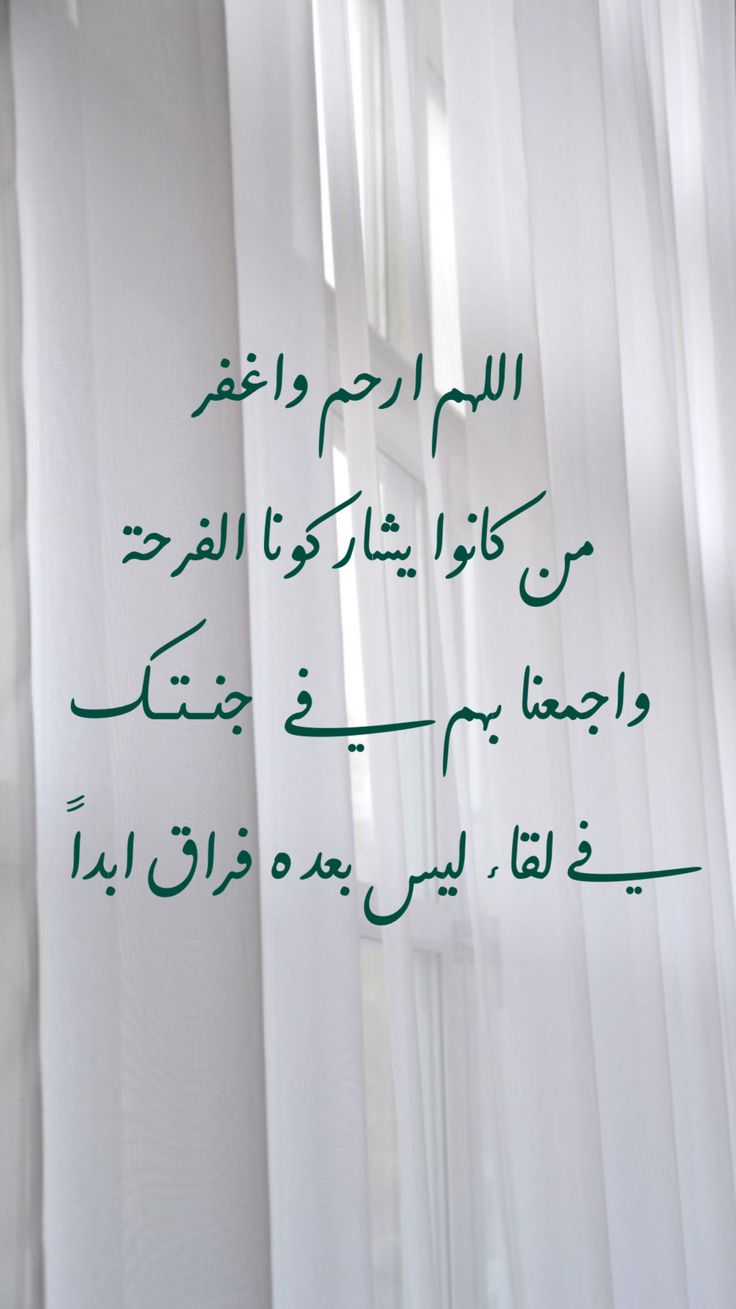 اللهم ارحم واغفر
من كانوا يشاركونا الفرحة
واجمعنا بهم في جنتك
في لقاء ليس بعده فراق ابداً